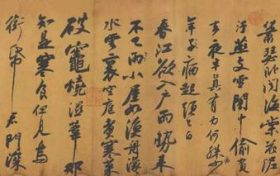 蕭瑟臥聞海棠花泥
汙燕支雪闇中偷負
去夜半真有力何殊少
年子病起頭已白
春江欲入戶雨勢來
不已小屋如漁舟濛
水雲裏空庖煮寒菜
破竈燒溼葦那
知是寒食但見烏
銜帋
君門深